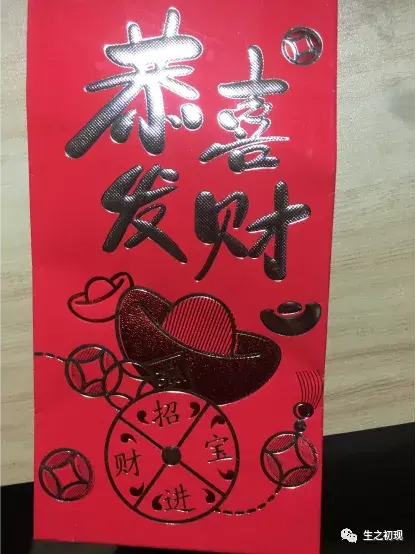 恭喜
发财
招财进宝
生之初现